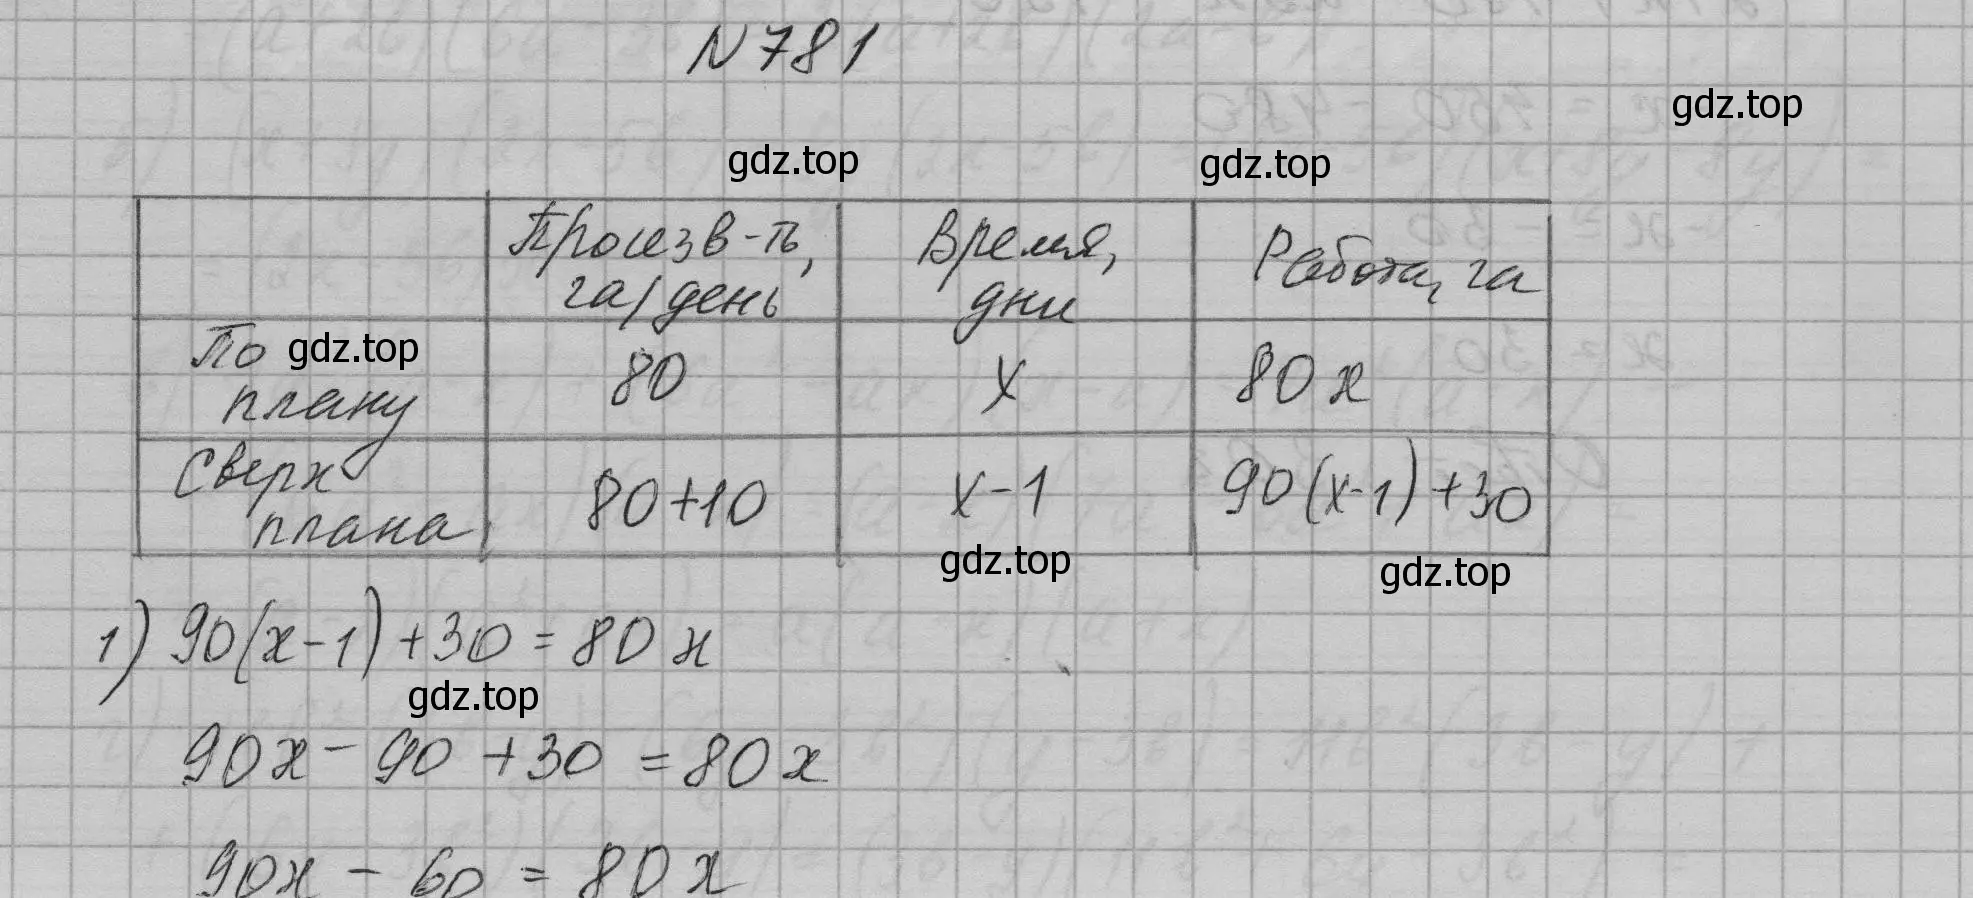 N 781
gdz.top
gdz.top gdz.top
Произв-ть, га/день
Время, дни
Работа, га
По плану
gdz.top
80
x
80x
Сверх плана
80+10
x-1
90(x-1)+30
gdz.top
gdz.top
1) 90(x-1)+30=80x
gdz.top
90x-90+30=80x
90x-60=80x